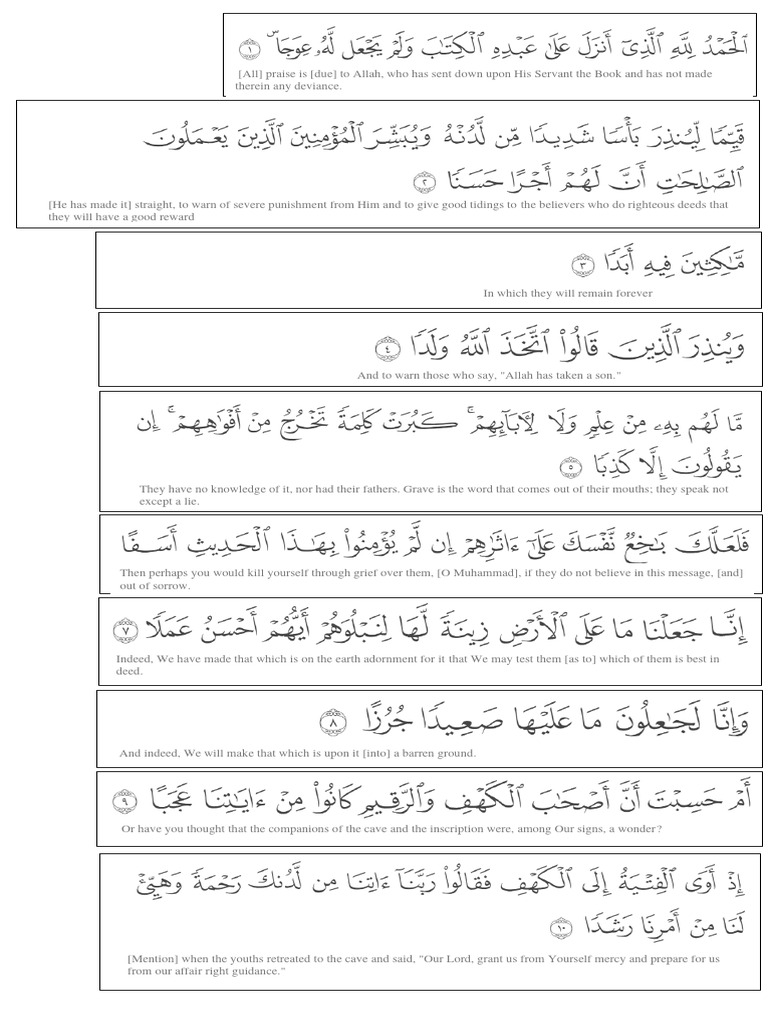 ٱلۡحَمۡدُ لِلَّهِ ٱلَّذِيٓ أَنزَلَ عَلَىٰ عَبۡدِهِ ٱلۡكِتَٰبَ وَلَمۡ يَجۡعَل لَّهُۥ عِوَجَاۜ ١
[All] praise is [due] to Allah, who has sent down upon His Servant the Book and has not made
therein any deviance.
قَيِّمٗا لِّيُنذِرَ بَأۡسٗا شَدِيدٗا مِّن لَّدُنۡهُ وَيُبَشِّرَ ٱلۡمُؤۡمِنِينَ ٱلَّذِينَ يَعۡمَلُونَ
ٱلصَّٰلِحَٰتِ أَنَّ لَهُمۡ أَجۡرًا حَسَنٗا ٢
[He has made it] straight, to warn of severe punishment from Him and to give good tidings to the believers who do righteous deeds that
they will have a good reward
مَّٰكِثِينَ فِيهِ أَبَدٗا ٣
In which they will remain forever
وَيُنذِرَ ٱلَّذِينَ قَالُواْ ٱتَّخَذَ ٱللَّهُ وَلَدٗا ٤
And to warn those who say, "Allah has taken a son."
مَّا لَهُم بِهِۦ مِنۡ عِلۡمٖ وَلَا لِأٓبَآئِهِمۡۚ كَبُرَتۡ كَلِمَةٗ تَخۡرُجُ مِنۡ أَفۡوَٰهِهِمۡۚ إِن
يَقُولُونَ إِلَّا كَذِبٗا ٥
They have no knowledge of it, nor had their fathers. Grave is the word that comes out of their mouths; they speak not
except a lie.
فَلَعَلَّكَ بَٰخِعٞ نَّفۡسَكَ عَلَىٰٓ ءَاثَٰرِهِمۡ إِن لَّمۡ يُؤۡمِنُواْ بِهَٰذَا ٱلۡحَدِيثِ أَسَفًا
Then perhaps you would kill yourself through grief over them, [O Muhammad], if they do not believe in this message, [and]
out of sorrow.
إِنَّا جَعَلۡنَا مَا عَلَى ٱلۡأَرۡضِ زِينَةٗ لَّهَا لِنَبۡلُوَهُمۡ أَيُّهُمۡ أَحۡسَنُ عَمَلٗا ٧
Indeed, We have made that which is on the earth adornment for it that We may test them [as to] which of them is best in
deed.
وَإِنَّا لَجَٰعِلُونَ مَا عَلَيۡهَا صَعِيدٗا جُرُزًا ٨
And indeed, We will make that which is upon it [into] a barren ground.
أَمۡ حَسِبۡتَ أَنَّ أَصۡحَٰبَ ٱلۡكَهۡفِ وَٱلرَّقِيمِ كَانُواْ مِنۡ ءَايَٰتِنَا عَجَبًا ٩
Or have you thought that the companions of the cave and the inscription were, among Our signs, a wonder?
إِذۡ أَوَى ٱلۡفِتۡيَةُ إِلَى ٱلۡكَهۡفِ فَقَالُواْ رَبَّنَآ ءَاتِنَا مِن لَّدُنكَ رَحۡمَةٗ وَهَيِّئۡ
لَنَا مِنۡ أَمۡرِنَا رَشَدٗا ١٠
[Mention] when the youths retreated to the cave and said, "Our Lord, grant us from Yourself mercy and prepare for us
from our affair right guidance."